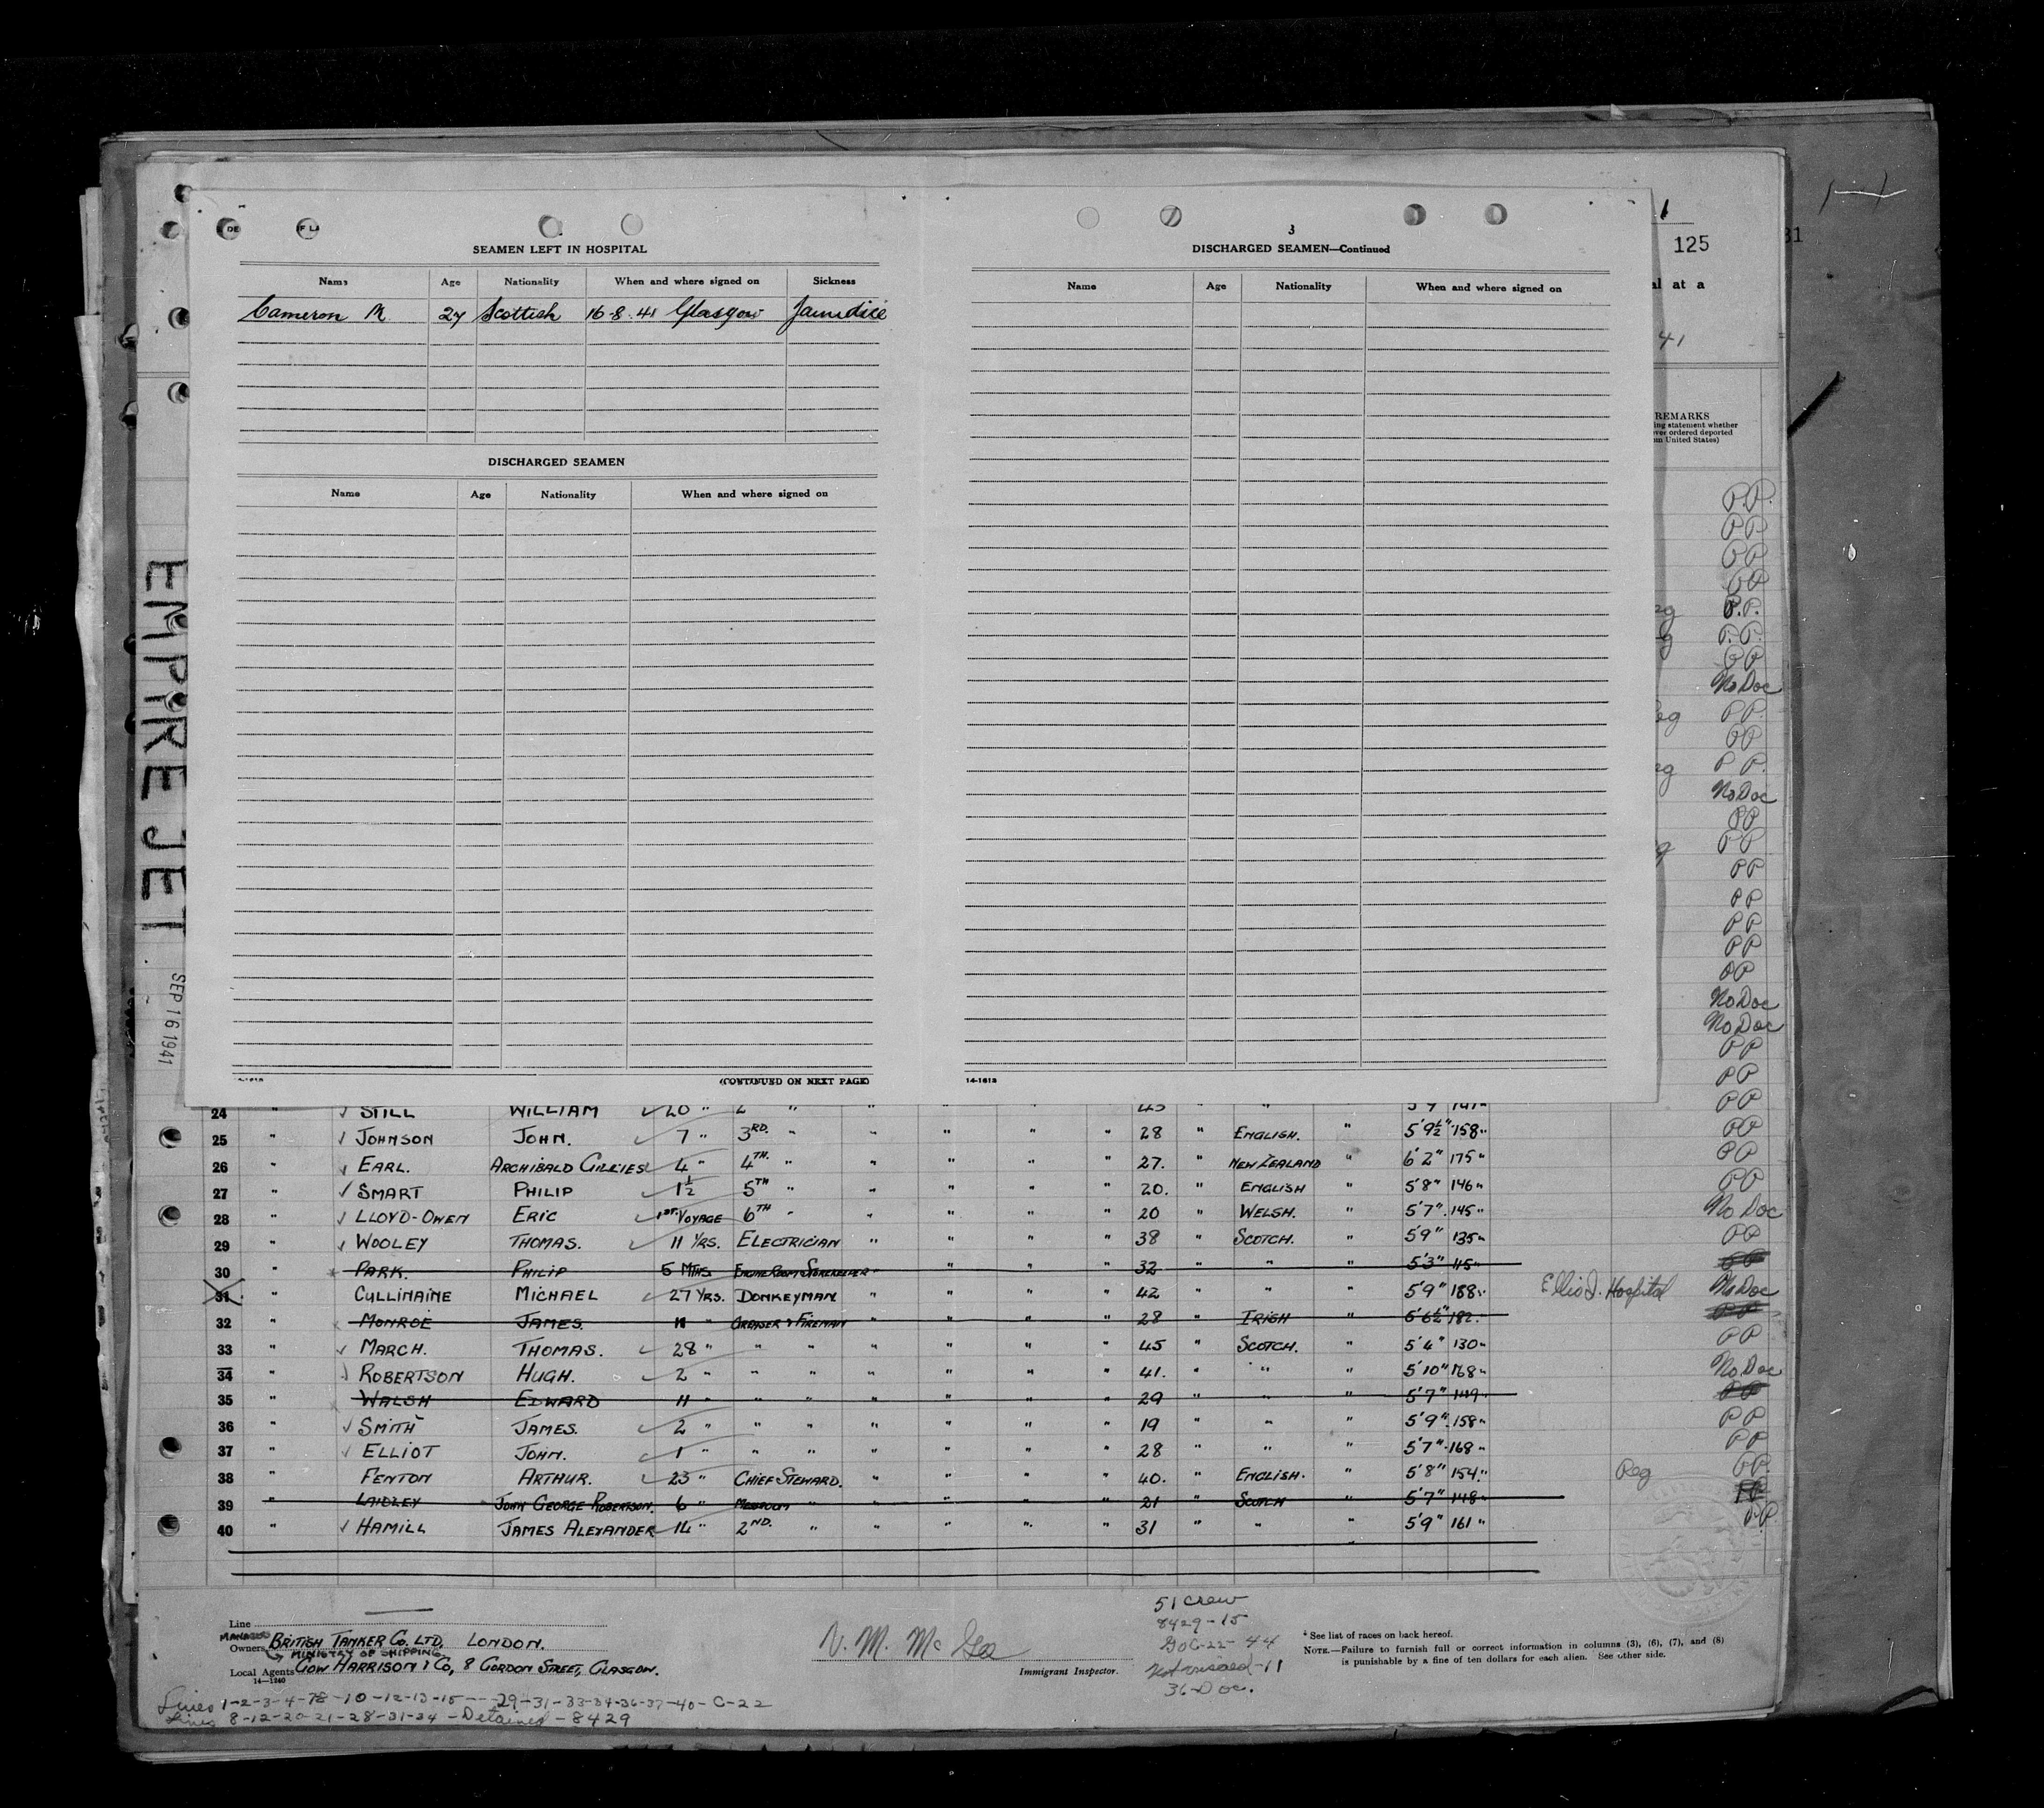 SEAMEN LEFT IN HOSPITAL
Name Age Nationality When and where signed on Sickness
Cameron M 27 Scottish 16-8-41 Glasgow Jaundice
DISCHARGED SEAMEN
Name Age Nationality When and where signed on
(CONTINUED ON NEXT PAGE)
3
DISCHARGED SEAMEN—Continued
Name Age Nationality When and where signed on
14-1613
1
125
al at a
41
REMARKS
ing statement whether
ever ordered deported
om United States)
P.P.
PP
PP
PP
eg P.P.
eg P.P.
PP
No Doc
eg PP
PP
eg P P.
No Doc
PP
g PP
PP
PP
PP
PP
PP
No Doc
No Doc
PP
PP
EMPIRE JET
SEP 16 1941
24 " STILL WILLIAM 20 " 2 " " " " " 45 " " " 5'9" 147" PP
25 " JOHNSON JOHN. 7 " 3RD. " " " " " 28 " ENGLISH. " 5'9½" 158" PP
26 " EARL. ARCHIBALD GILLIES 4 " 4TH. " " " " " 27. " NEW ZEALAND " 6'2" 175" PP
27 " SMART PHILIP 1½ 5TH " " " " " 20. " ENGLISH " 5'8" 146" PP
28 " LLOYD-OWEN ERIC 1ST. VOYAGE 6TH " " " " " 20 " WELSH. " 5'7" 145" No Doc
29 " WOOLEY THOMAS. 11 YRS. ELECTRICIAN " " " " 38 " SCOTCH. " 5'9" 135" PP
30 " PARK. PHILIP 5 MTHS. ENGINE ROOM STOREKEEPER " " " " 32 " " " 5'3" 115" PP
31 " CULLINAINE MICHAEL 27 YRS. DONKEYMAN " " " " 42 " " " 5'9" 188" Ellis I. Hospital No Doc
32 " MONROE JAMES. 11 " GREASER & FIREMAN " " " " 28 " IRISH " 5'6½" 182" PP
33 " MARCH. THOMAS. 28 " " " " " " " 45 " SCOTCH. " 5'4" 130" PP
34 " ROBERTSON HUGH. 2 " " " " " " " 41. " " " 5'10" 168" No Doc
35 " WALSH EDWARD 11 " " " " " " " 29 " " " 5'7" 149" PP
36 " SMITH JAMES. 2 " " " " " " " 19 " " " 5'9" 158" PP
37 " ELLIOT JOHN. 1 " " " " " " " 28 " " " 5'7" 168" PP
38 " FENTON ARTHUR. 23 " CHIEF STEWARD. " " " " 40. " ENGLISH. " 5'8" 154" Reg PP.
39 " LAIDLEY JOHN GEORGE ROBERTSON. 6 " MESSROOM " " " " " 21 " SCOTCH " 5'7" 148" PP
40 " HAMILL JAMES ALEXANDER 14 " 2ND. " " " " " 31 " " " 5'9" 161" P.P.
Line
MANAGERS
Owners BRITISH TANKER CO. LTD. LONDON.
MINISTRY OF SHIPPING
Local Agents GOW HARRISON & CO, 8 GORDON STREET, GLASGOW.
14—1240
V. M. McGee
Immigrant Inspector.
51 crew
8429-15
C-22 44
Not visaed-11
36-Doc.
* See list of races on back hereof.
NOTE.—Failure to furnish full or correct information in columns (3), (6), (7), and (8)
is punishable by a fine of ten dollars for each alien. See other side.
Lines 1-2-3-4-78-10-12-13-15---29-31-33-34-36-37-40-C-22
Lines 8-12-20-21-28-31-34-Detained-8429